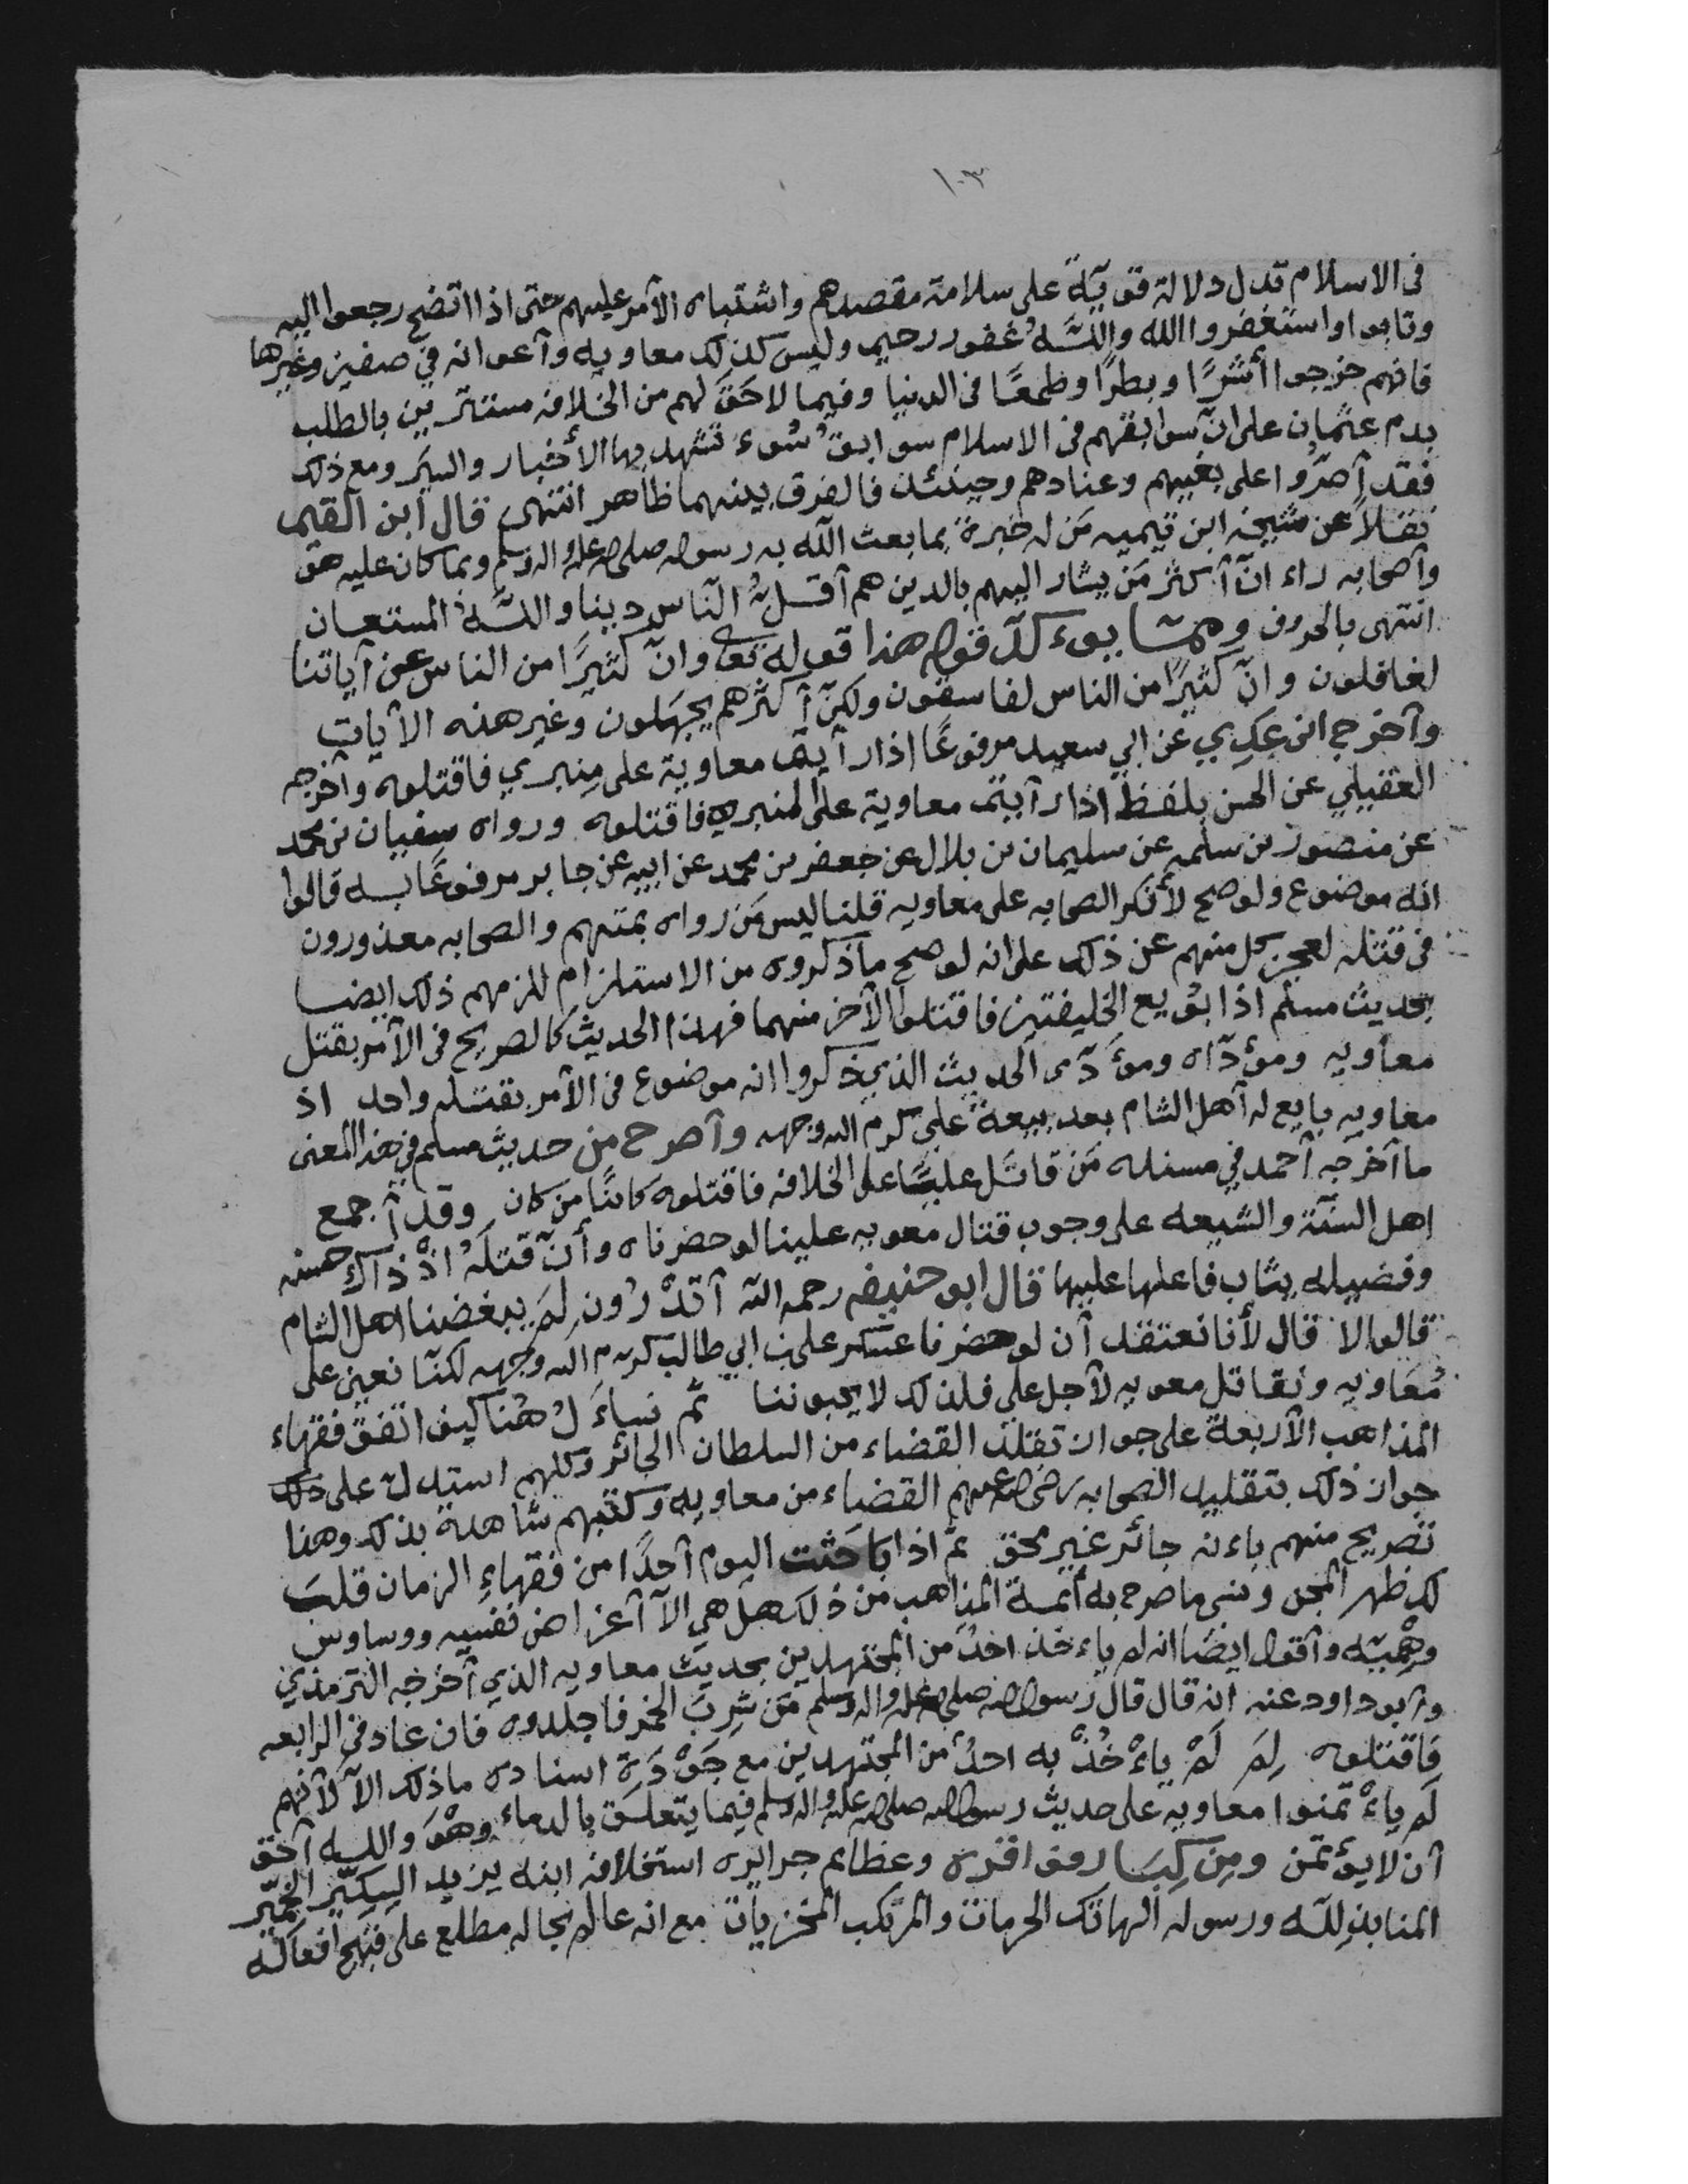 ١٠٣
فى الاسلام تدل دلالة قويّة على سلامة مقصدهم واشتباه الأمر عليهم حتى اذا اتضح رجعوا اليه
وتابوا واستغفروا الله واللّه غفور رحيم وليس كذلك معاويه وآعوانه في صفين وغيرها
فانهم خرجوا أشرًا وبطرًا وطمعًا فى الدنيا وفيما لا حَقّ لهم من الخلافه مستترين بالطلب
بدم عثمان على انّ سوابقهم فى الاسلام سوابقُ سُوء تشهد بها الأخبار والسيَر ومع ذلك
فقد آصرّوا على بغيهم وعنادهم وحينئذ فالفرق بينهما ظاهر انتهى قال ابن القيم
نقلاً عن شيخه ابن تيميه مَن له خبرة بما بعث اللّه به رسوله صلى الله عليه واله وسلم وبما كان عليه هو
وآصحابه راء انّ آكثر مَن يشار اليهم بالدين هم آقلُّ النّاس دينا واللّهُ المستعان
انتهى بالحروف ومما يوءكّد قوله هذا قوله تعالى وانّ كثيرًا من الناس عن آياتنا
لغافلون وانّ كثيرًا من الناس لفاسقون ولكنّ آكثرهم يجهَلون وغير هذه الآيات
وآخرج ابن عَدِي عن ابي سعيد مرفوعًا اذا رآيتم معاوية على مِنبري فاقتلوه وآخرجه
العقيلي عن الحسن بلفظ اذا رآيتم معاوية على المنبر فاقتلوه ورواه سفيان بن محمد
عن منصور بن سلمه عن سليمان بن بلال عن جعفر بن محمد عن ابيه عن جابر مرفوعًا به قالوا
انه موضوع ولو صح لأنكر الصحابه على معاويه قلنا ليس مَن رواه بمتهم والصحابه معذورون
فى قتله لعجز كل منهم عن ذلك على انه لو صح ماذكروه من الاستلزام للزمهم ذلك ايضا
بحديث مسلم اذا بُويع الخليفتين فاقتلوا الآخر منهما فهذا الحديث كالصريح فى الآمر بقتل
معاويه ومؤدّاه وموءَدّى الحديث الذي ذكروا انه موضوع فى الآمر بقتله واحد اذ
معاويه بايع له آهل الشام بعد بيعة علي كرم الله وجهه وآصرح من حديث مسلم في هذا المعنى
ما آخرجه آحمد في مسنده مَن قاتَل عليًّا على الخلافه فاقتلوه كائنًا من كان وقد آجمع
اهل السنّة والشيعه على وجوب قتال معويه علينا لو حضرناه وأنّ قتلَهُ اذْ ذاك حسنه
وفضيله يثاب فاعلها عليها قال ابو حنيفه رحمه اللّه آتدْرُون لِمَ يبغضنا اهل الشام
قالوا لا قال لأنا نعتقد آن لو حضرنا عسكر علي بن ابي طالب كرم الله وجهه لكنّا نعين على
مُعَاويه ونقاتل معويه لآجل علي فلذلك لا يحبوننا ثم نساءَلُ هُنا كيف اتّفق فقهاء
المذاهب الآربعة على جواز تقلّد القضاء من السلطان الجائر وكلهم استدل على ذلك
جواز ذلك بتقليد الصحابه رضى الله عنهم القضاء من معاويه وكتبهم شاهدة بذلك وهذا
تصريح منهم باءنه جائر غير محق ثمّ اذا باحَثت اليوم آحدًا من فقهاءِ الزمان قلبَ
لك ظهر المجن ونسى ما صرح به أئمة المذاهب من ذلك هل هي الآ آغراض نفسيه ووساوس
وهْميّه وآقول ايضًا انه لم ياءخذ احدُ من المجتهدين بحديث معاويه الذي آخرجه الترمذي
وآبو داود عنه انه قال قال رسول الله صلى الله عليه واله وسلم مَن شرِبَ الخمر فاجلدوه فان عاد فى الرابعه
فاقتلوه لِمَ لَمْ ياءْخُذْ به احدُ من المجتهدين مع جَوْدَة اسناده ماذلك الآ لآنهم
لَم ياءْتمنوا معاويه على حديث رسول الله صلى الله عليه واله وسلم فيما يتعلّق بالدماء وهْوَ واللّه آحق
آن لا يؤتمَن ومِن كِبَار فواقره وعظائم جرايره استخلافه ابنه يزيد السِكِّير الخِمّير
المنابذ للّه ورسوله الهاتك الحرمات والمرتكب المخزيات مع انه عالم بحاله مطلع على قبيح أفعاله